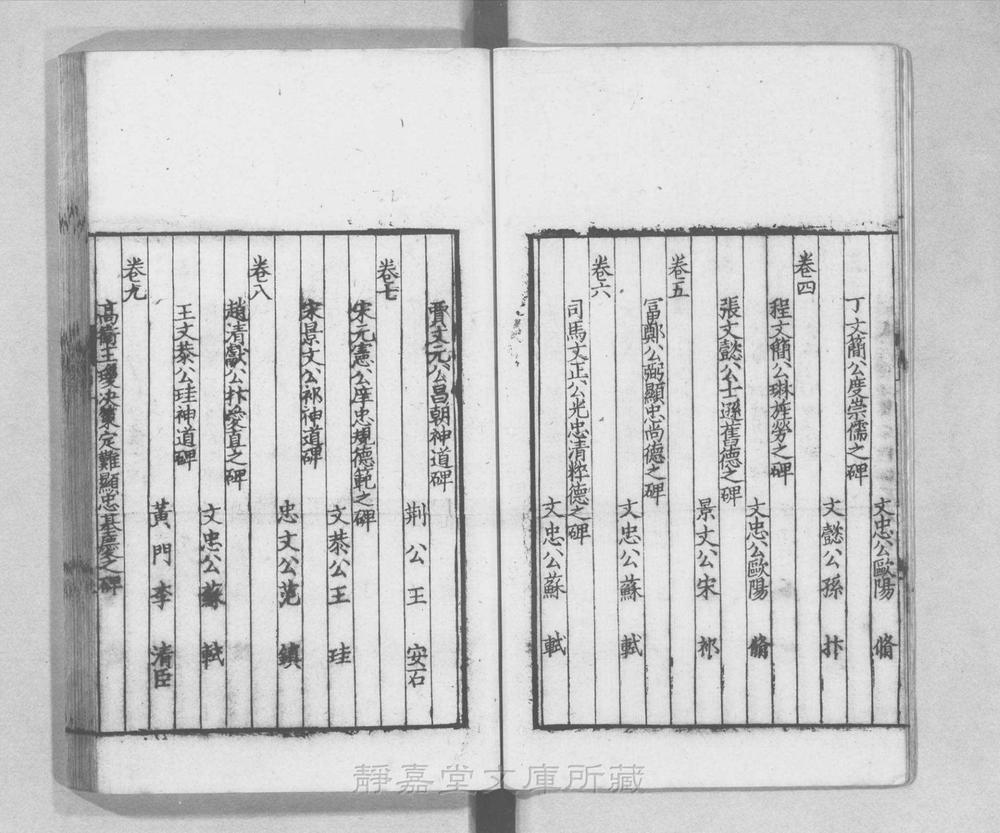 文忠公歐陽 脩
丁文簡公度崇儒之碑
文懿公孫 抃
卷四
程文簡公琳旌勞之碑
文忠公歐陽 脩
張文懿公士遜舊德之碑
景文公宋 祁
卷五
富鄭公弼顯忠尚德之碑
文忠公蘇 軾
卷六
司馬文正公光忠清粹德之碑
文忠公蘇 軾
賈文元公昌朝神道碑
荆公王 安石
卷七
宋元憲公庠忠規德範之碑
文恭公王 珪
宋景文公祁神道碑
忠文公范 鎮
卷八
趙清獻公抃愛直之碑
文忠公蘇 軾
王文恭公珪神道碑
黃門李 清臣
卷九
高衞王瓊决策定難顯忠基慶之碑
靜嘉堂文庫所藏